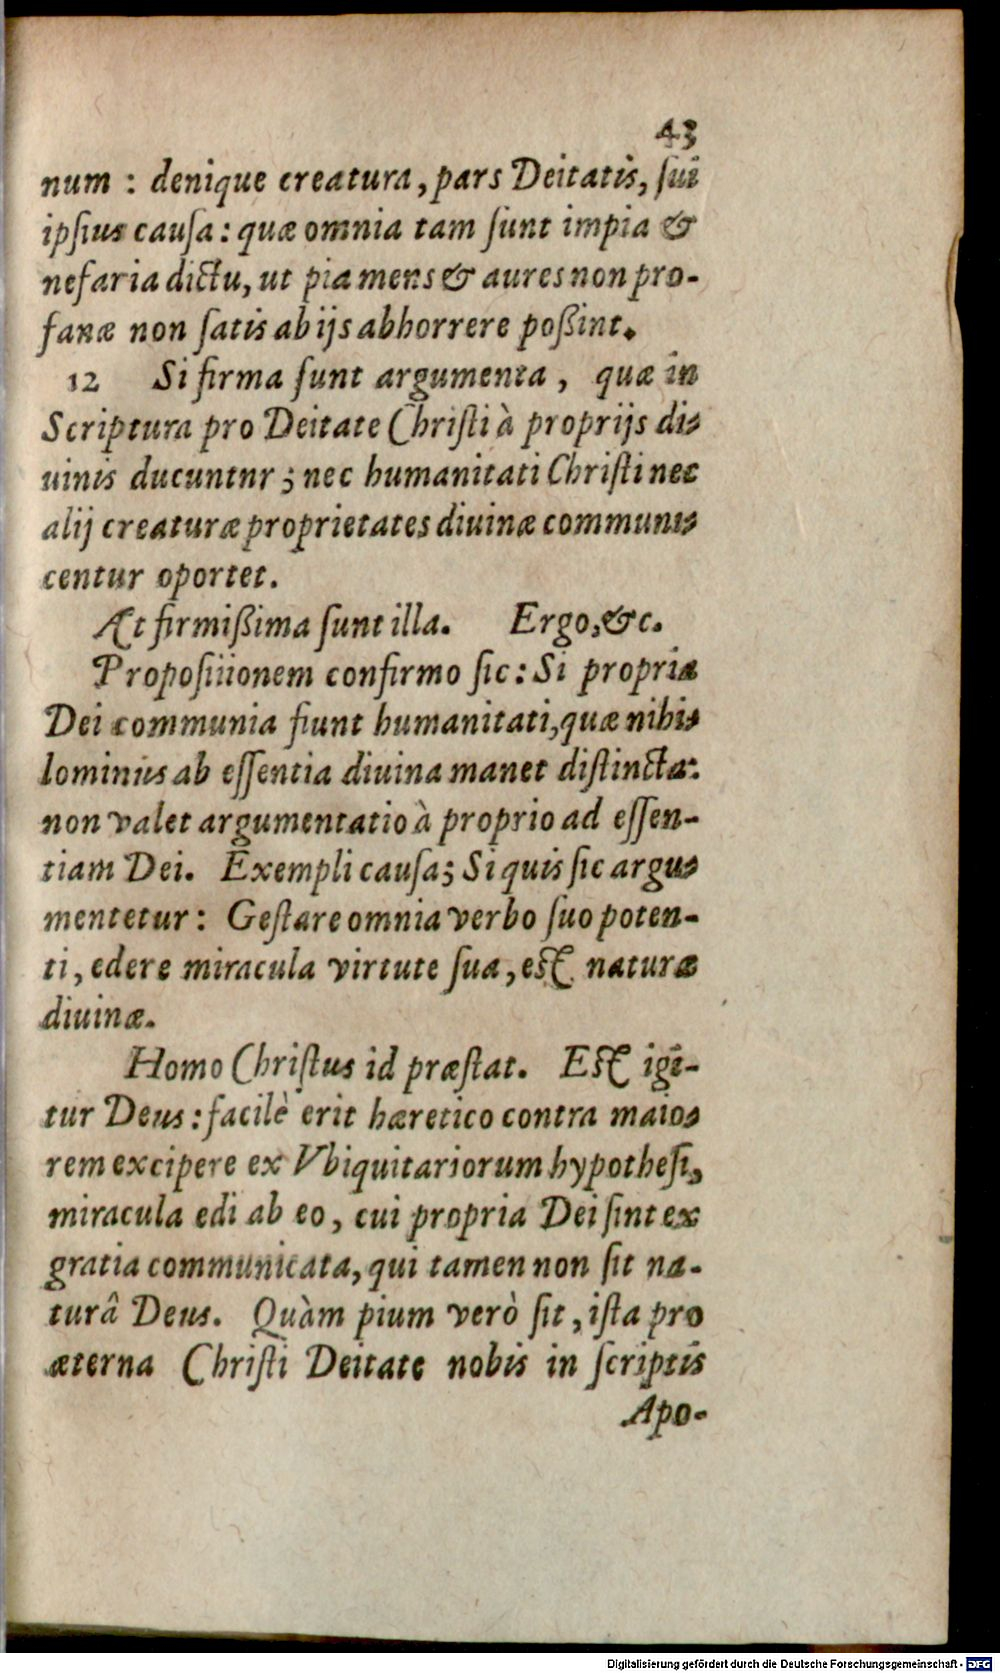 43
num : denique creatura, pars Deitatis, ſui
ipſius cauſa: quæ omnia tam ſunt impia &
nefaria dictu, ut pia mens & aures non pro-
fanæ non ſatis ab ijs abhorrere poßint.
12 Si firma ſunt argumenta, quæ in
Scriptura pro Deitate Chriſti à proprijs di-
uinis ducuntnr; nec humanitati Chriſti nec
alij creaturæ proprietates diuinæ communi-
centur oportet.
Æt firmißima ſunt illa. Ergo, &c.
Propoſiiionem confirmo ſic: Si propria
Dei communia fiunt humanitati, quæ nihi-
lominius ab eſſentia diuina manet diſtincta:
non valet argumentatio à proprio ad eſſen-
tiam Dei. Exempli cauſa; Si quis ſic argu-
mentetur: Geſtare omnia verbo ſuo poten-
ti, edere miracula virtute ſua, eſt naturæ
diuinæ.
Homo Chriſtus id præſtat. Eſt igi-
tur Deus: facilè erit hæretico contra maio-
rem excipere ex Vbiquitariorum hypotheſi,
miracula edi ab eo, cui propria Dei ſint ex
gratia communicata, qui tamen non ſit na-
turâ Deus. Quàm pium verò ſit, iſta pro
æterna Chriſti Deitate nobis in ſcriptis
Apo-
Digitalisierung gefördert durch die Deutsche Forschungsgemeinschaft - DFG